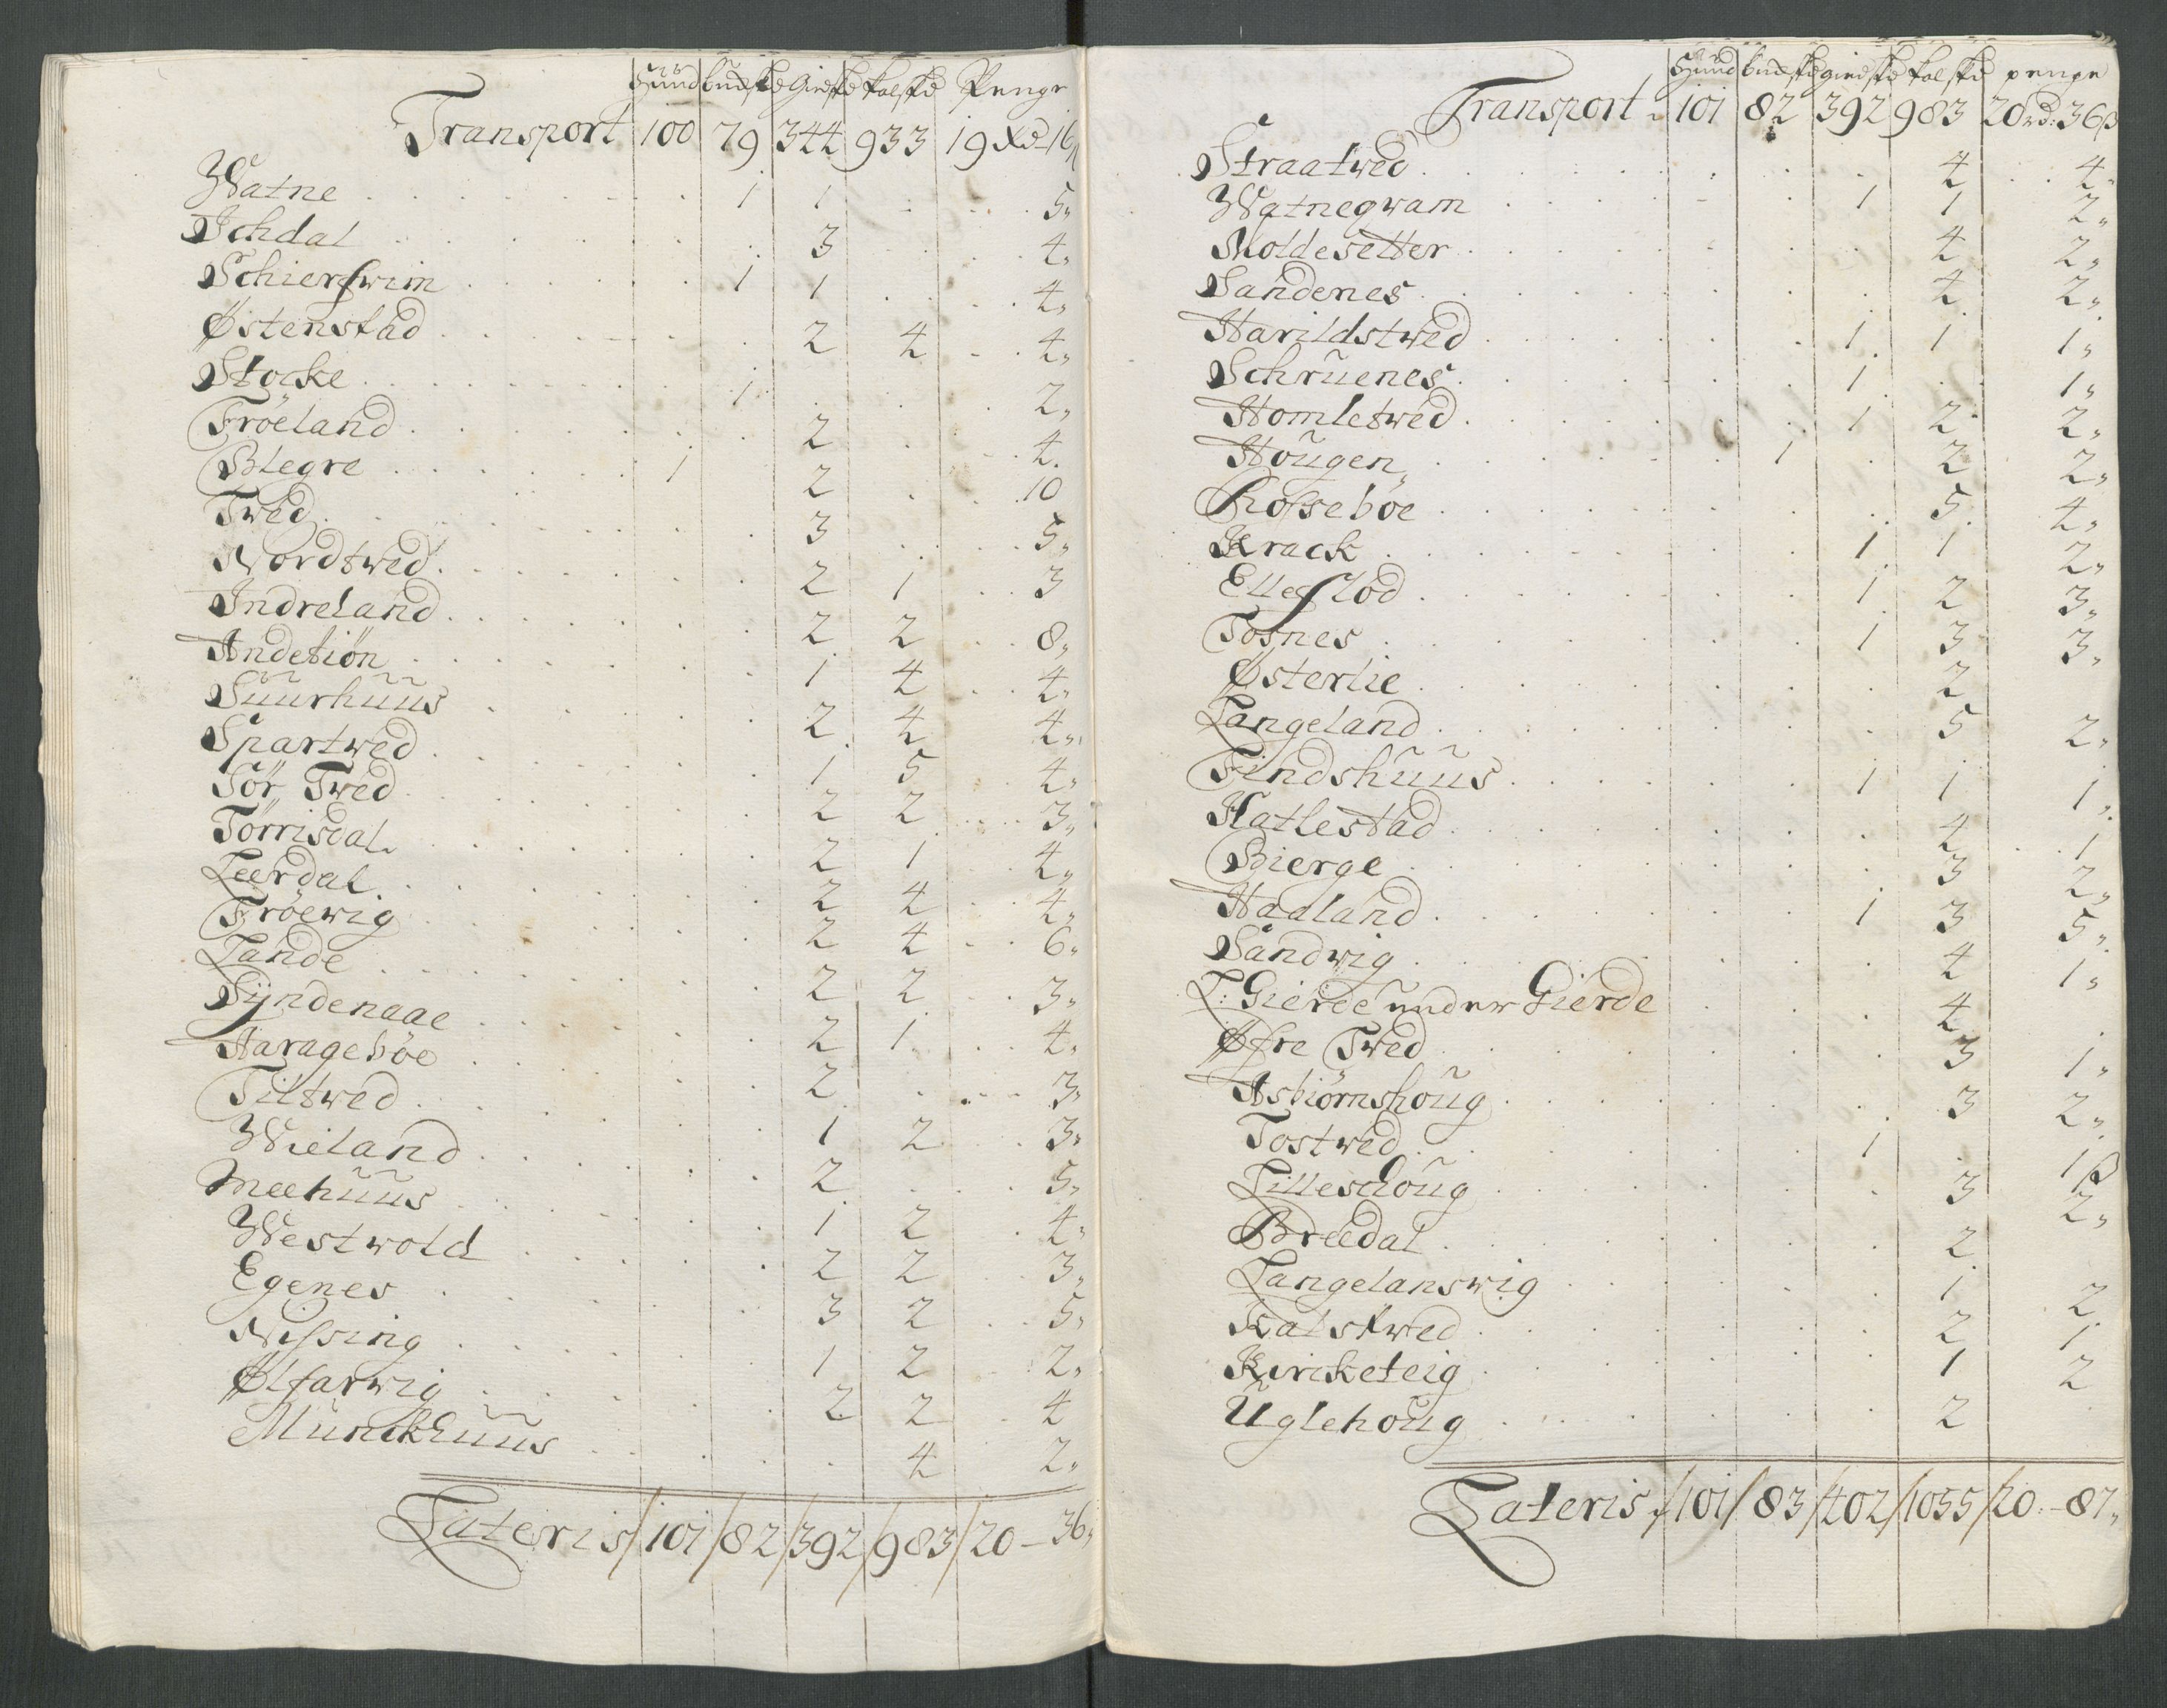 Hüud budske Giedske kalfske Penge
Transport 100 79 344 933 19 Xd 16
Watne 1 1 5
Ichdal 3 4
Schierswim 1 1 4
Østenstad 2 4 4
Stocke 1 2
Fröeland 2 4
Blegre 1 2 10
Twed 3 5
Nordtwed 2 1 3
Indreland 2 2 8
Andetiön 1 4 4
Suurhuus 2 4 4
Spartwed 1 5 4
Sör Twed 2 2 3
Törrisdal 2 1 4
Leerdal 2 4 4
Fröewig 2 4 6
Lande 2 2 3
Tyndenaae 2 1 4
Aarageböe 2 3
Tiltwed 1 2 3
Wieland 2 5
Meehuus 1 2 4
Westwold 2 2 3
Egenes 3 2 5
Nissing 1 2 2
Ølfarwig 2 2 4
Munckhuus 4 2
Lateris /101/82/392/983/20 - 36
Hüud budske giedske kalfske penge
Transport 101 82 392 983 20 rd: 36 ß
Straatwed 4 4
Watneqwam 1 1 2
Moldesetter 4 2
Sandenes 4 2
Harildstwed 1 1 1
Schruenes 1 1
Homletwed 1 2 2
Hougen 1 2 2
Rosseböe 5 4
Krack 1 1 2
Ellesflod 1 2 3
Tosnes 1 3 3
Østerlie 2
Langeland 5 2
Findshuus 1 1 1
Hatlestad 4 1
Bierge 3 2
Haaland 1 3 5
Sandwig 4 1
L: Gierde under Gierde 4
Øfre Twed 3 1
Asbiörnshoug 3 2
Tostwed 1 1 ß
Lilleschoug 3 2
Breedal 2
Langelanswig 1 2
Kalstwed 2 1
Kirketeig 1 2
Uglehoug 2
Lateris /101/83/402/1055/20 - 87